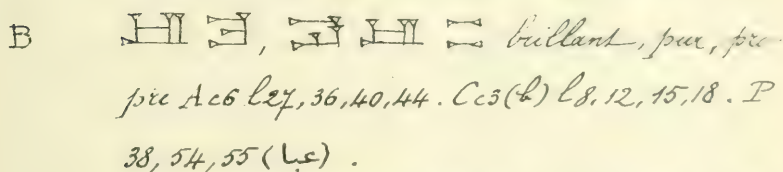 B , brillant, pur, pro-
pre Ac6 l27, 36, 40, 44. Cc3(b) l8, 12, 15, 18. P
38, 54, 55 (عبا).